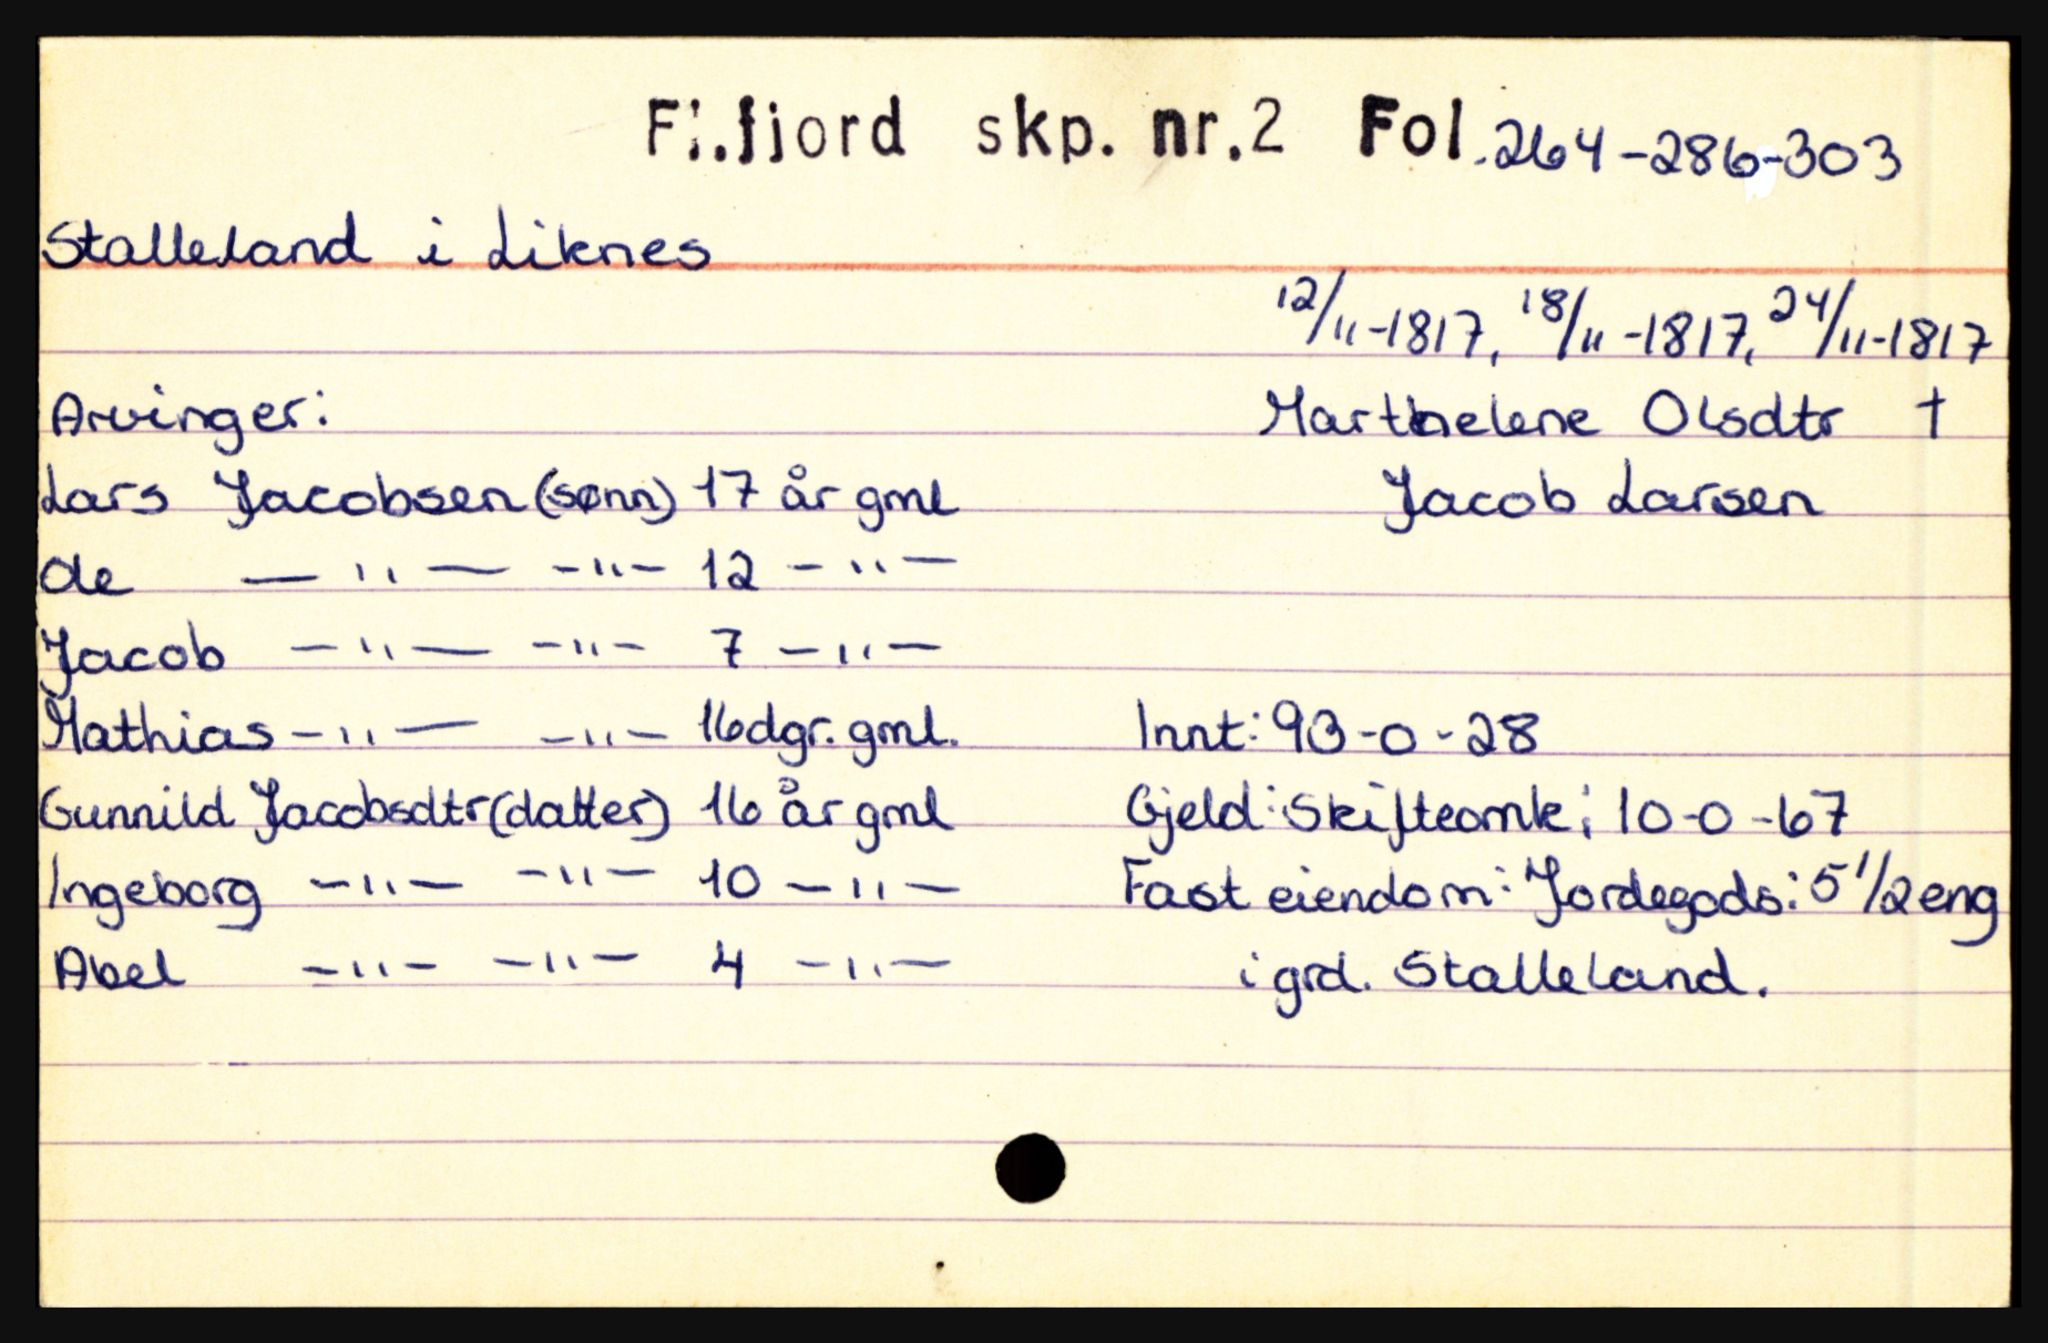 Fl.fjord skp. nr.2 Fol.264-286-303
Stalleland i Liknes
12/11-1817, 18/11-1817, 24/11-1817
Arvinger: Marthelene Olsdtr †
Lars Jacobsen (sønn) 17 år gml Jacob Larsen
Ole —"— -"- 12 -"-
Jacob -"- -"- 7 -"-
Mathias -"- -"- 16dgr. gml. Innt: 93-0-28
Gunnild Jacobsdtr (datter) 16 år gml Gjeld: Skifteomk; 10-0-67
Ingeborg -"- -"- 10 -"- Fast eiendom: Jordegods: 5 1/2 eng
Abel -"- -"- 4 -"- i grd. Stalleland.